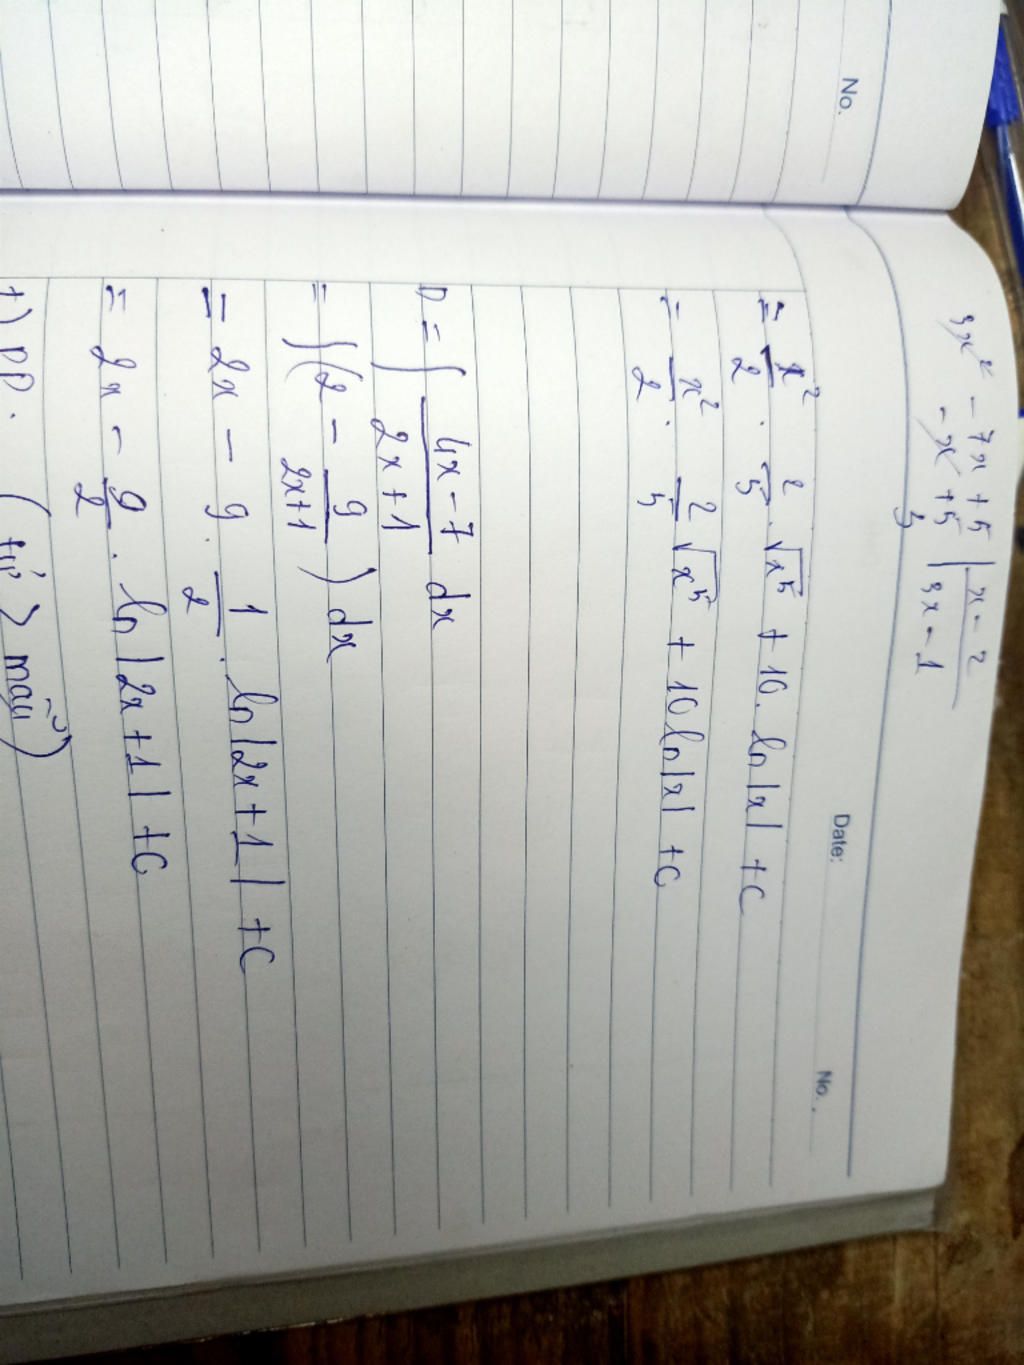 No.
3x² - 7x + 5 | x - 2
- x + 5 | 3x - 1
3
Date: No.
= x²/2 . 2/5 . √x⁵ + 10. ln|x| + C
= x²/2 . 2/5 √x⁵ + 10 ln|x| + C
D = ∫ (4x - 7)/(2x + 1) dx
= ∫(2 - 9/(2x+1)) dx
= 2x - 9 . 1/2 . ln|2x + 1| + C
= 2x - 9/2 . ln|2x + 1| + C
+) PP. (tử > mẫu)